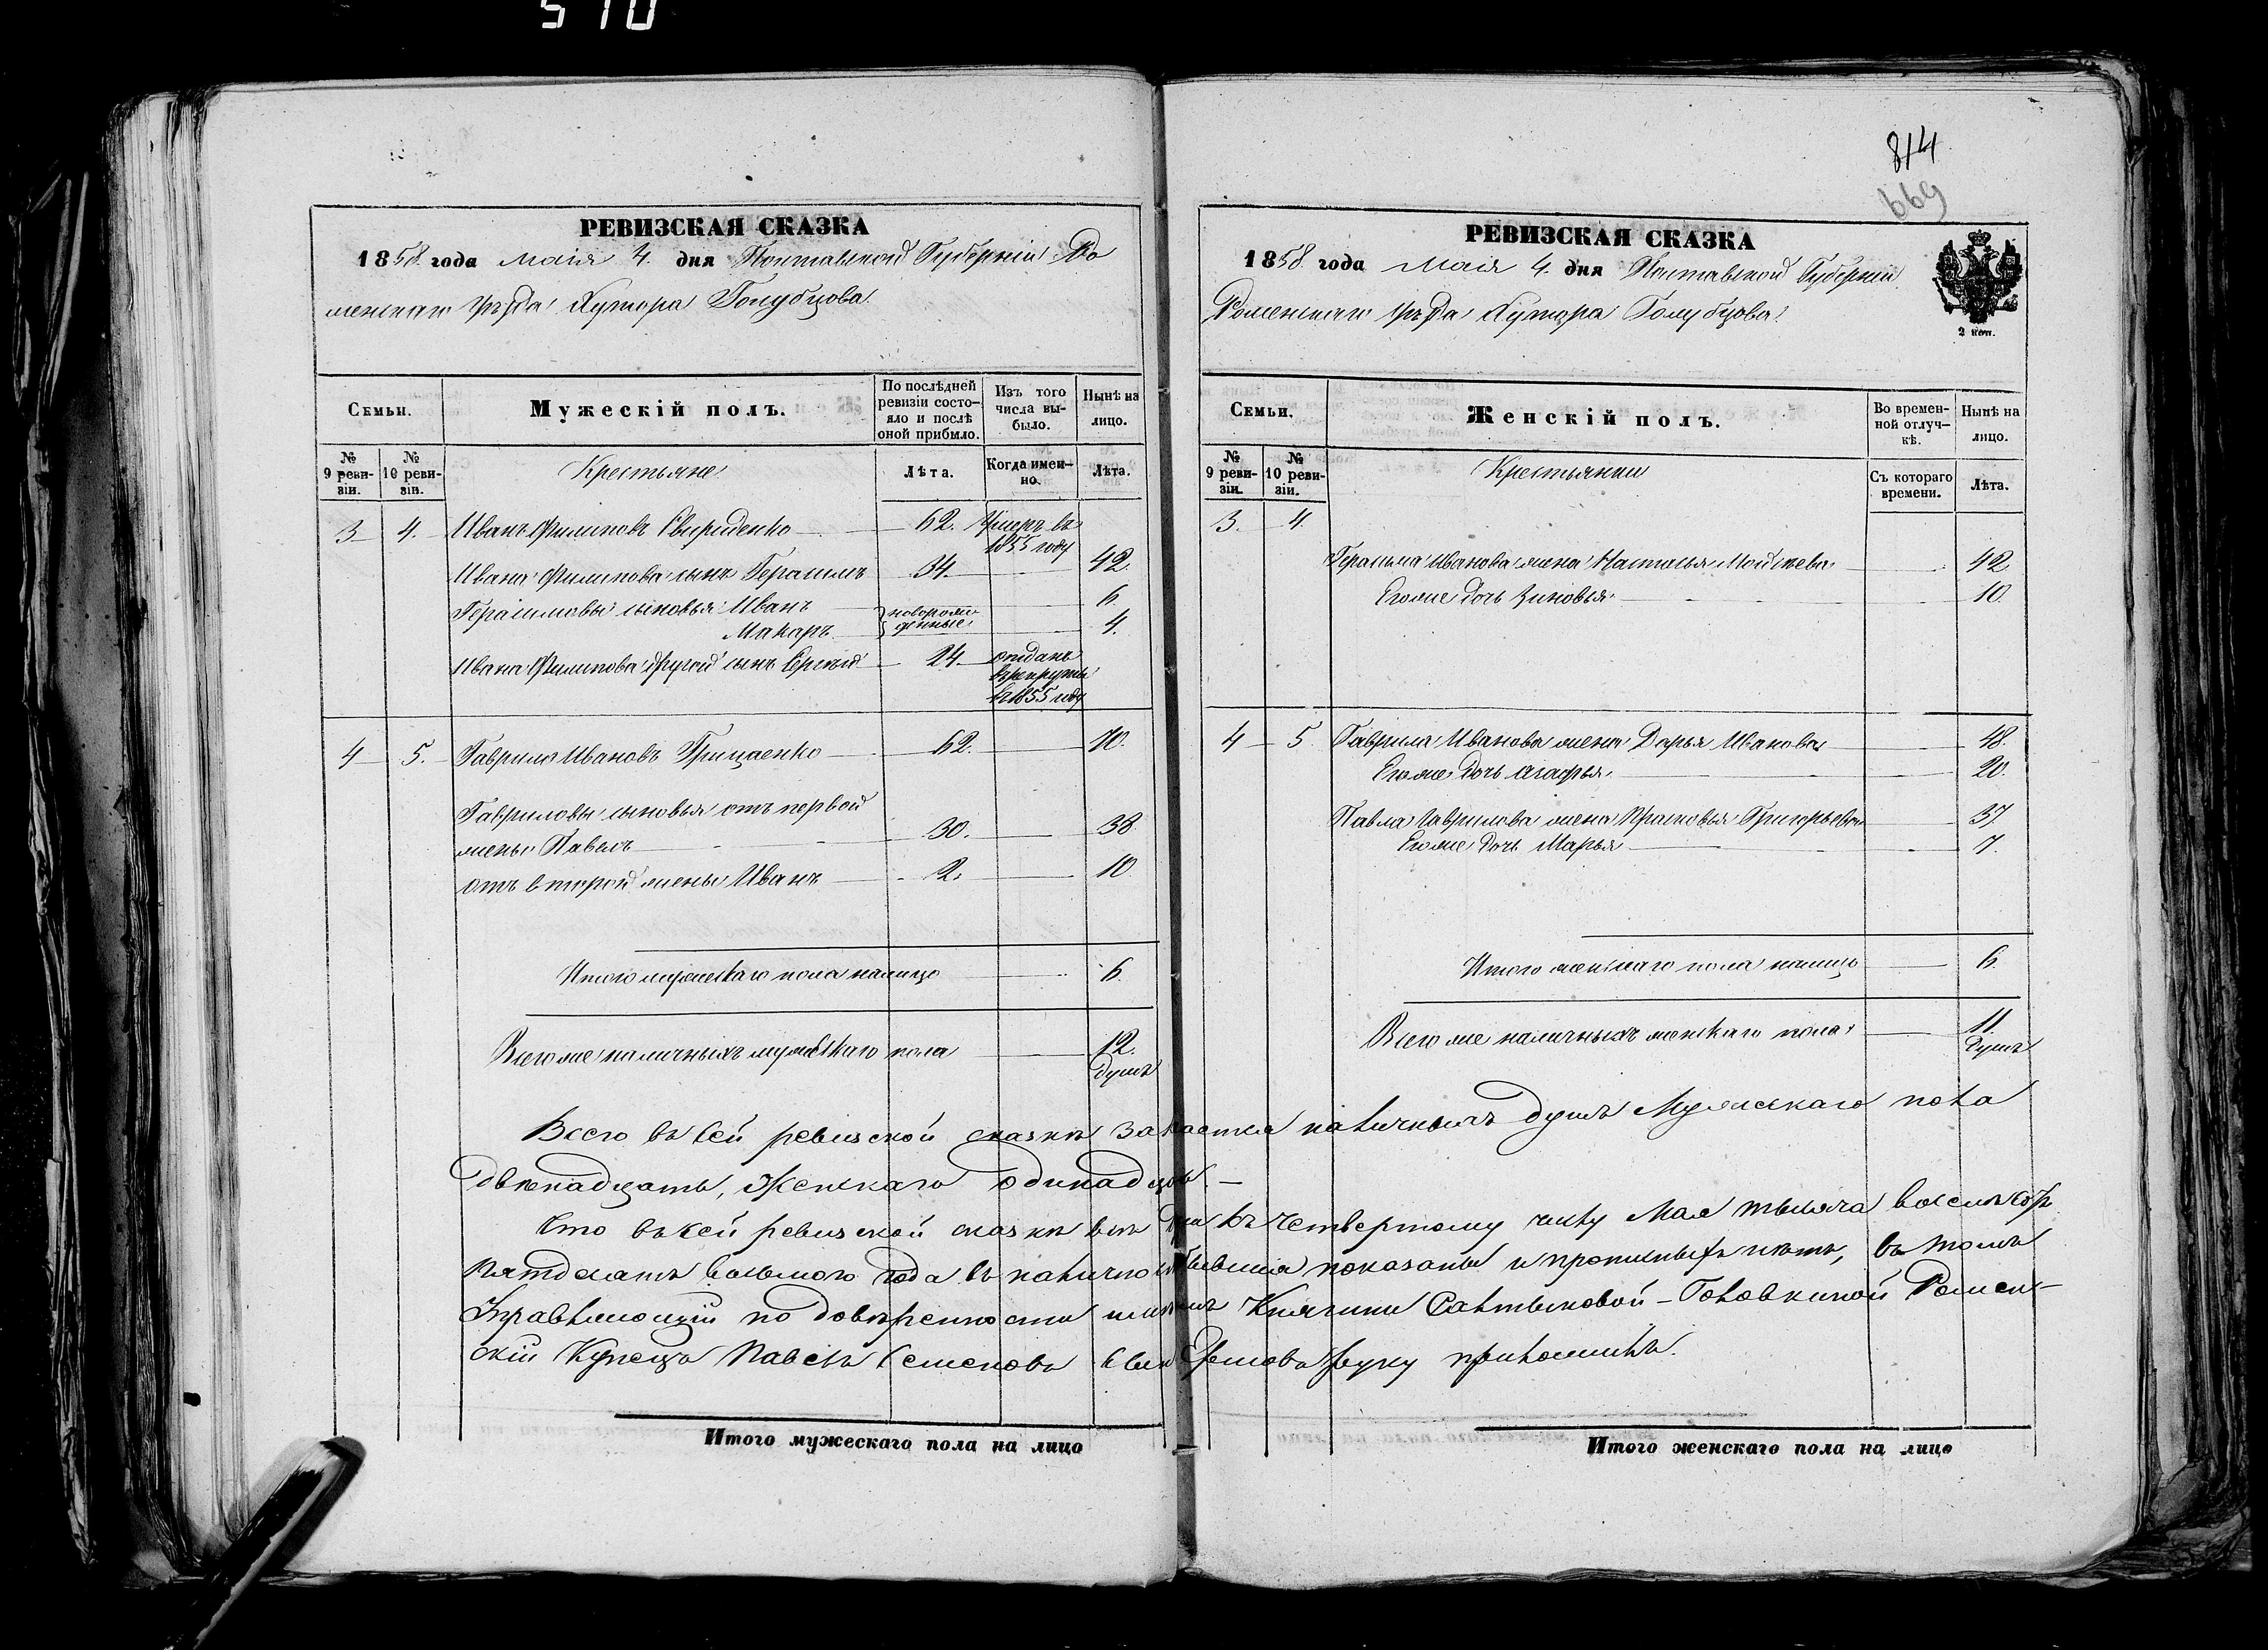 510
814
669
РЕВИЗСКАЯ СКАЗКА
1858 года маія 4. дня Полтавской Губерніи Ро
менскаго уѣзда Хутора Голубцова
Семьи.
Мужескій полъ.
По послѣдней ревизіи состояло и послѣ оной прибыло.
Изъ того числа выбыло.
Нынѣ на лицо.
№ 9 ревизіи.
№ 10 ревизіи.
Крестьяне
Лѣта.
Когда именно.
Лѣта.
3 4. Иванъ Филиповъ Свириденко 62. Умеръ въ 1855 году
Ивана Филипова сынъ Герасимъ 34. 42.
Герасимовы сыновья Иванъ новорож- 6.
Макаръ денные 4.
Ивана Филипова другой сынъ Сергѣй 24. отданъ в рекруты в 1855 году
4 5. Гаврило Ивановъ Грицаенко 62. 70.
Гавриловы сыновья отъ первой
жены Павелъ 30. 38
отъ второй жены Иванъ 2. 10
Итого мужескаго пола налицо 6.
Всего же наличныхъ мужескаго пола 12. душъ
РЕВИЗСКАЯ СКАЗКА
1858 года маія 4. дня Полтавской Губерніи
Роменскаго уѣзда Хутора Голубцова
2 коп.
Семьи.
Женскій полъ.
Во временной отлучкѣ.
Нынѣ на лицо.
№ 9 ревизіи.
№ 10 ревизіи.
Крестьянки
Съ котораго времени.
Лѣта.
3. 4.
Герасима Иванова жена Настасья Мойсѣева 42
Егоже дочь Зиновья 10.
4 5 Гаврила Иванова жена Дарья Иванова 48.
Егоже дочь Агафья 20.
Павла Гаврилова жена Прасковья Григорьева 37.
Егоже дочь Марья 7.
Итого женскаго пола налицо 6.
Всего же наличныхъ женскаго пола 11. душъ
Всего въ сей ревизской сказкѣ заключается наличныхъ душъ Мужескаго пола
двѣнадцать, Женскаго одинадцать.
Что въ сей ревизской сказкѣ всѣ къ четвертому числу Мая тысяча восемьсотъ
пятдесятъ восьмого года въ наличности бывшія показаны и прописныхъ нѣтъ, въ томъ
Управляющій по довѣренности имѣніемъ Княгини Салтыковой-Головкиной Ромен-
скій Купецъ Павелъ Семеновъ руку приложилъ.
Итого мужескаго пола на лицо
Итого женскаго пола на лицо